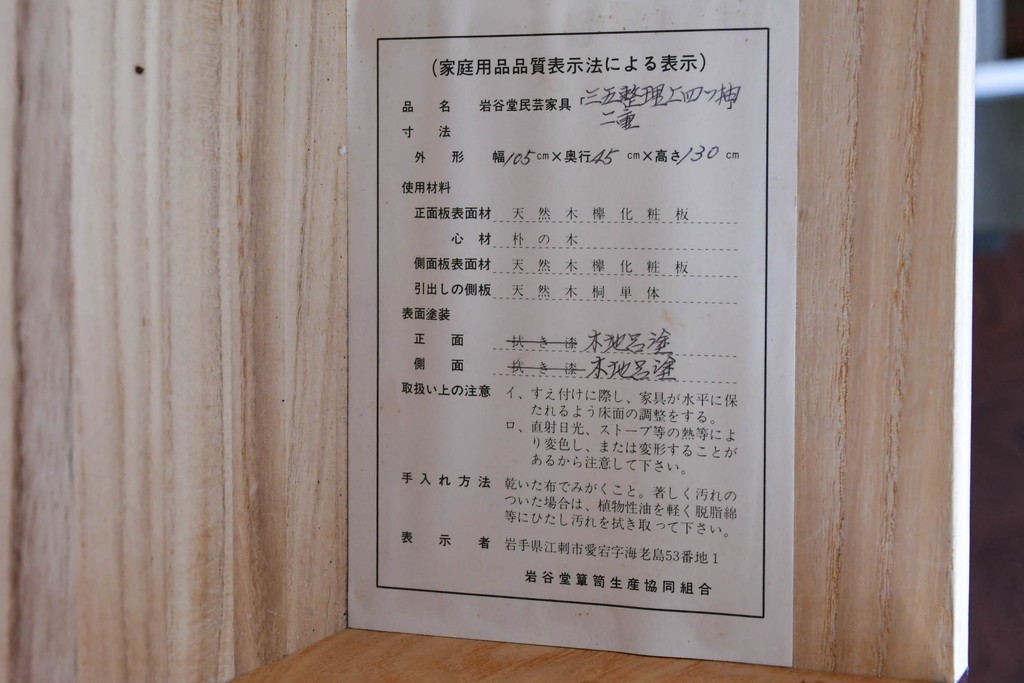 (家庭用品品質表示法による表示)
品名 岩谷堂民芸家具 「三五整理上四ツ抽
二重
寸法
外形 幅105cm×奥行45cm×高さ130cm
使用材料
正面板表面材 天然木欅化粧板
心材 朴の木
側面板表面材 天然木欅化粧板
引出しの側板 天然木桐単体
表面塗装
正面 拭き漆 木地呂塗
側面 拭き漆 木地呂塗
取扱い上の注意 イ、すえ付けに際し、家具が水平に保
たれるよう床面の調整をする。
ロ、直射日光、ストーブ等の熱等によ
り変色し、または変形することが
あるから注意して下さい。
手入れ方法 乾いた布でみがくこと。著しく汚れの
ついた場合は、植物性油を軽く脱脂綿
等にひたし汚れを拭き取って下さい。
表示者 岩手県江刺市愛宕字海老島53番地1
岩谷堂簞笥生産協同組合